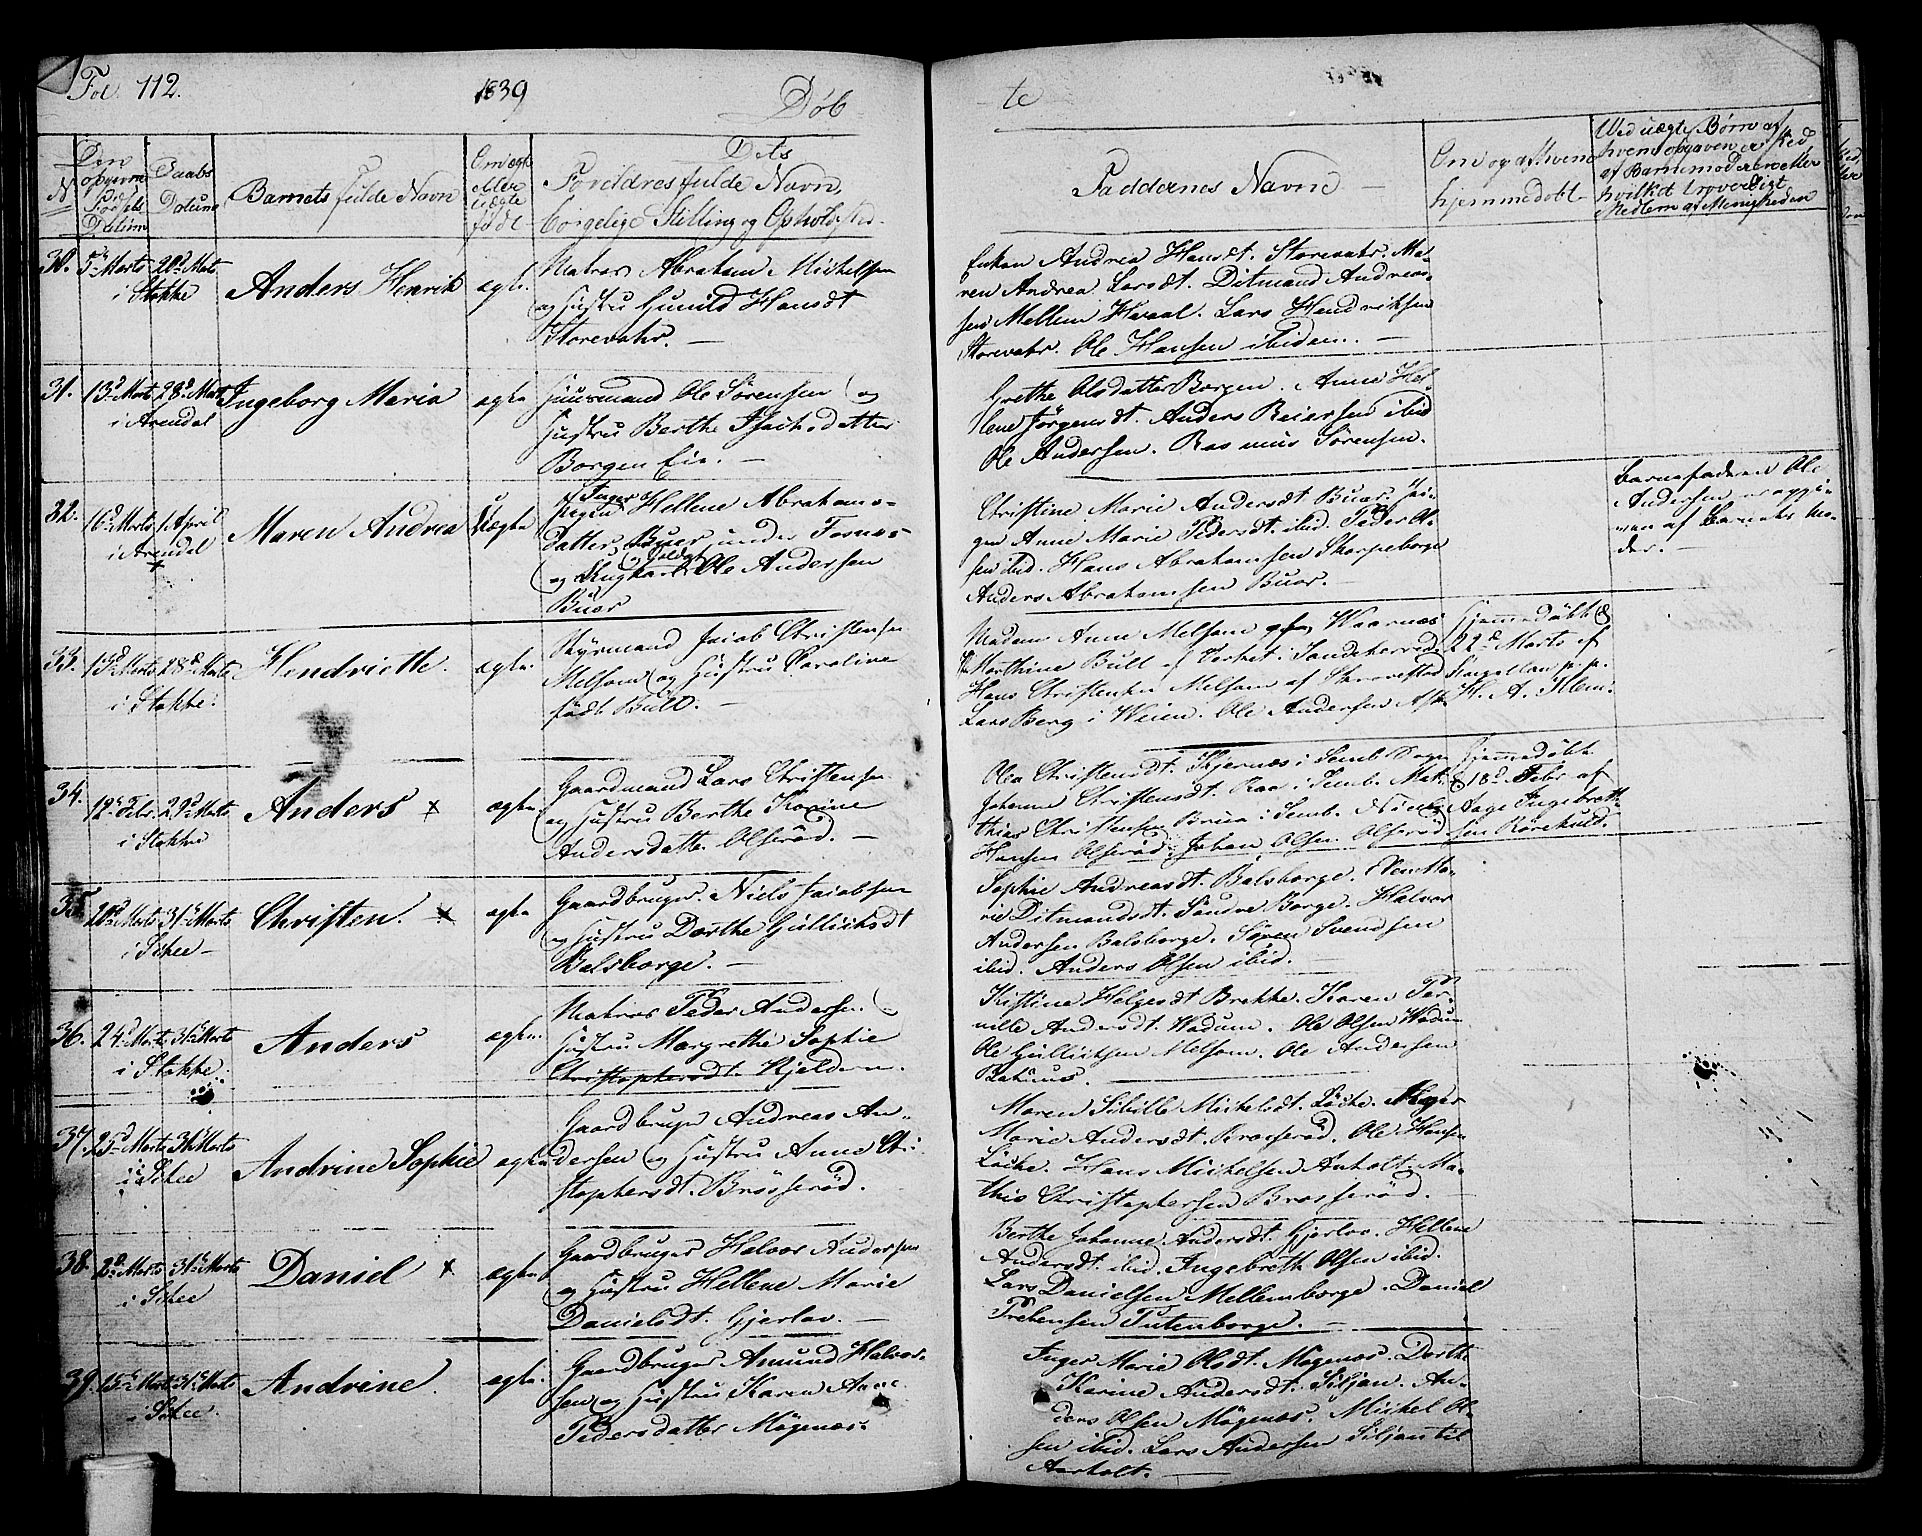 Fol. 112.
1839
Døb
te
N
Den
opgivne
Fødsels
Datum
Daabs
Datum
Barnets fulde Navn
Om ægte
eller
uægte
født
Dets
Forældres fulde Navn,
borgelige Stilling og Opholdsted.
Faddernes Navne
Om og af hvem
hjemmedøbt
Ved uægte Børn af
hvem opgaven er sked
af Barnemoderen eller
hvilket troverdigt
Medlem af Menigheden
30.
5 Marts
i Stokke
20d Marts
Anders Henrik
ægte.
Matros Abraham Michelsen
og Hustru Gunild Hansdt
Storevahr.
Enken Andrea Hansdt. Storevahr. Ma-
ren Andrea Larsdt. Ditmand Andrea-
sen Mellem Haraal. Lars Hendriksen
Storevahr. Ole Hansen ibidem.
31.
13d Marts
i Arendal
28d Marts
Ingeborg Maria
ægte
Huusmand Ole Sørensen og
Hustru Berthe Isachsdatter
Borgen Eie.
Grethe Olsdatter Borgen. Anne Hel-
lene Jørgensdt. Anders Reiersen ibid
Ole Andersen. Rasmus Sørensen.
32.
16d Marts
i Arendal
1 April
Maren Andrea
Uægte
Pigen Inger Hellene Abrahams-
Datter Buer under Fornes-
og Ungkarl Soldat Ole Andersen
Buer
Christine Marie Andersdt Buer. Pi-
gen Anne Marie Pedersdt. ibid. Peder Ol-
sen ibid. Hans Abrahamsen Skorpeborge
Anders Abrahamsen Buer.
Barnefaderen Ole
Andersen er oppgi-
ven af Barnets Mo-
der.
33.
19d Marts
i Stokke.
28d Marts
Hendriette.
ægte.
Styrmand Jacob Christensen
Melsom og Hustru Caroline
født Bull.
Madam Anne Melsom Waarnæs
Marthine Bull af Verhet i Sandeherred
Hans Christensen Melsom af Skrovestad
Lars Berg i Weien. Ole Andersen Ask
Hjemmedøbt d
22d Marts af
Capellan p. p.
H. A. Klem.
34.
12 Febr.
i Stokke
29d Marts
Anders x
ægte
Gaardmand Lars Christensen
og Hustru Berthe Karine
Andersdatter Olserød.
Olea Christensdt. Kjernæs i Semb Sogn
Johanne Christensdt. Raa i Semb. Mat-
thias Christensen Brua i Semb. Niels
Hansen Olserød. Johan Olsen Olserød
Hjemmedøbt
d 18d Febr af
Aage Ingebreth-
sen Rørekuld.
35.
20d Marts
i Skee
31te Marts
Christen. x
ægte
Gaardbruger Niels Jacobsen
og Hustru Dorthe Gullichsdt
Balsborge.
Sophie Andreasdt. Balsborge. Ma-
rie Ditmandsdt. Søndre Borge. Halvor
Andersen Balsborge. Søren Svendsen
ibid. Anders Olsen ibid.
36.
24d Marts
i Stokke.
31te Marts
Anders
ægte.
Matros Peder Andersen og
Hustru Margrethe Sophie
Christophersdt. Kjelden.
Kistine Helgesdt Brekke. Karen Per-
nille Andersdt. Wadum. Ole Olsen Wadum
Ole Gullichsen Melsom. Ole Andersen
Rakunes.
37.
25d Marts
i Skee
31te Marts
Andrine Sophie
ægte
Gaardbruger Andreas An-
dersen og Hustru Anne Chri-
stophersdt. Brøsserød.
Maren Sibille Michelsdt. Løche. Inger
Marie Andersdt. Brøsserød. Ole Hansen
Løche. Hans Michelsen Anholt. Ma-
this Christophersen Brøsserød.
38.
2d Marts
i Skee
31te Marts
Daniel x
ægte
Gaardbruger Halvor Andersen
og Hustru Hellene Marie
Danielsdt. Gjerlov.
Berthe Johanne Andersdt. Gjerlov. Hellene
Andersdt. ibid. Ingebreth Olsen ibid.
Lars Danielsen Mellemborge. Daniel
Trebensen Tutenborge.
39.
15de Marts
i Skee.
31te Marts
Andrine.
ægte.
Gaardbruger Amund Halvor-
sen og Hustru Karen Anne
Pedersdatter Møgenæs.
Inger Marie Olsdt. Møgenæs. Dorthe
Karine Andersdt. Siljan. An-
ders Olsen Møgenæs. Michel Ol-
sen ibid. Lars Andersen Siljam til
Aarholt.